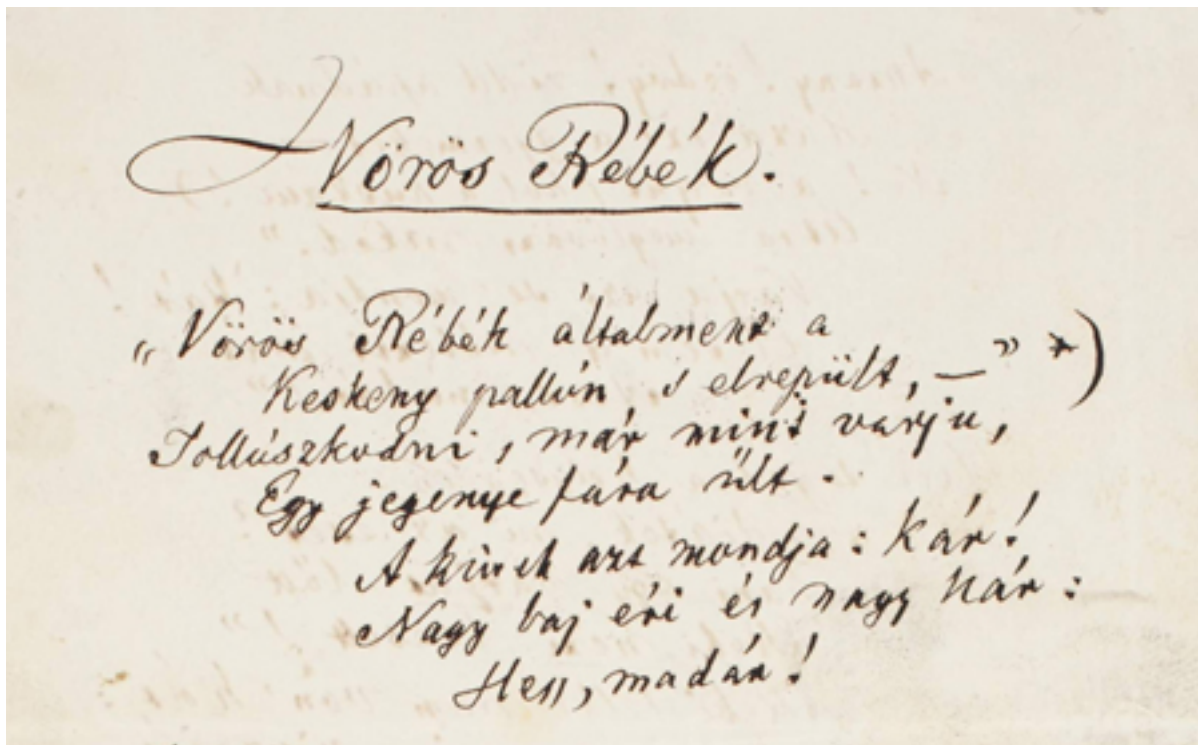 Vörös Rébék.
„Vörös Rébék általment a
Keskeny pallón s elrepült, —” *)
Tollászkodni, már mint varju,
Egy jegenye fára ült.
A kinek azt mondja: kár!
Nagy baj éri és nagy kár:
Hess, madár!